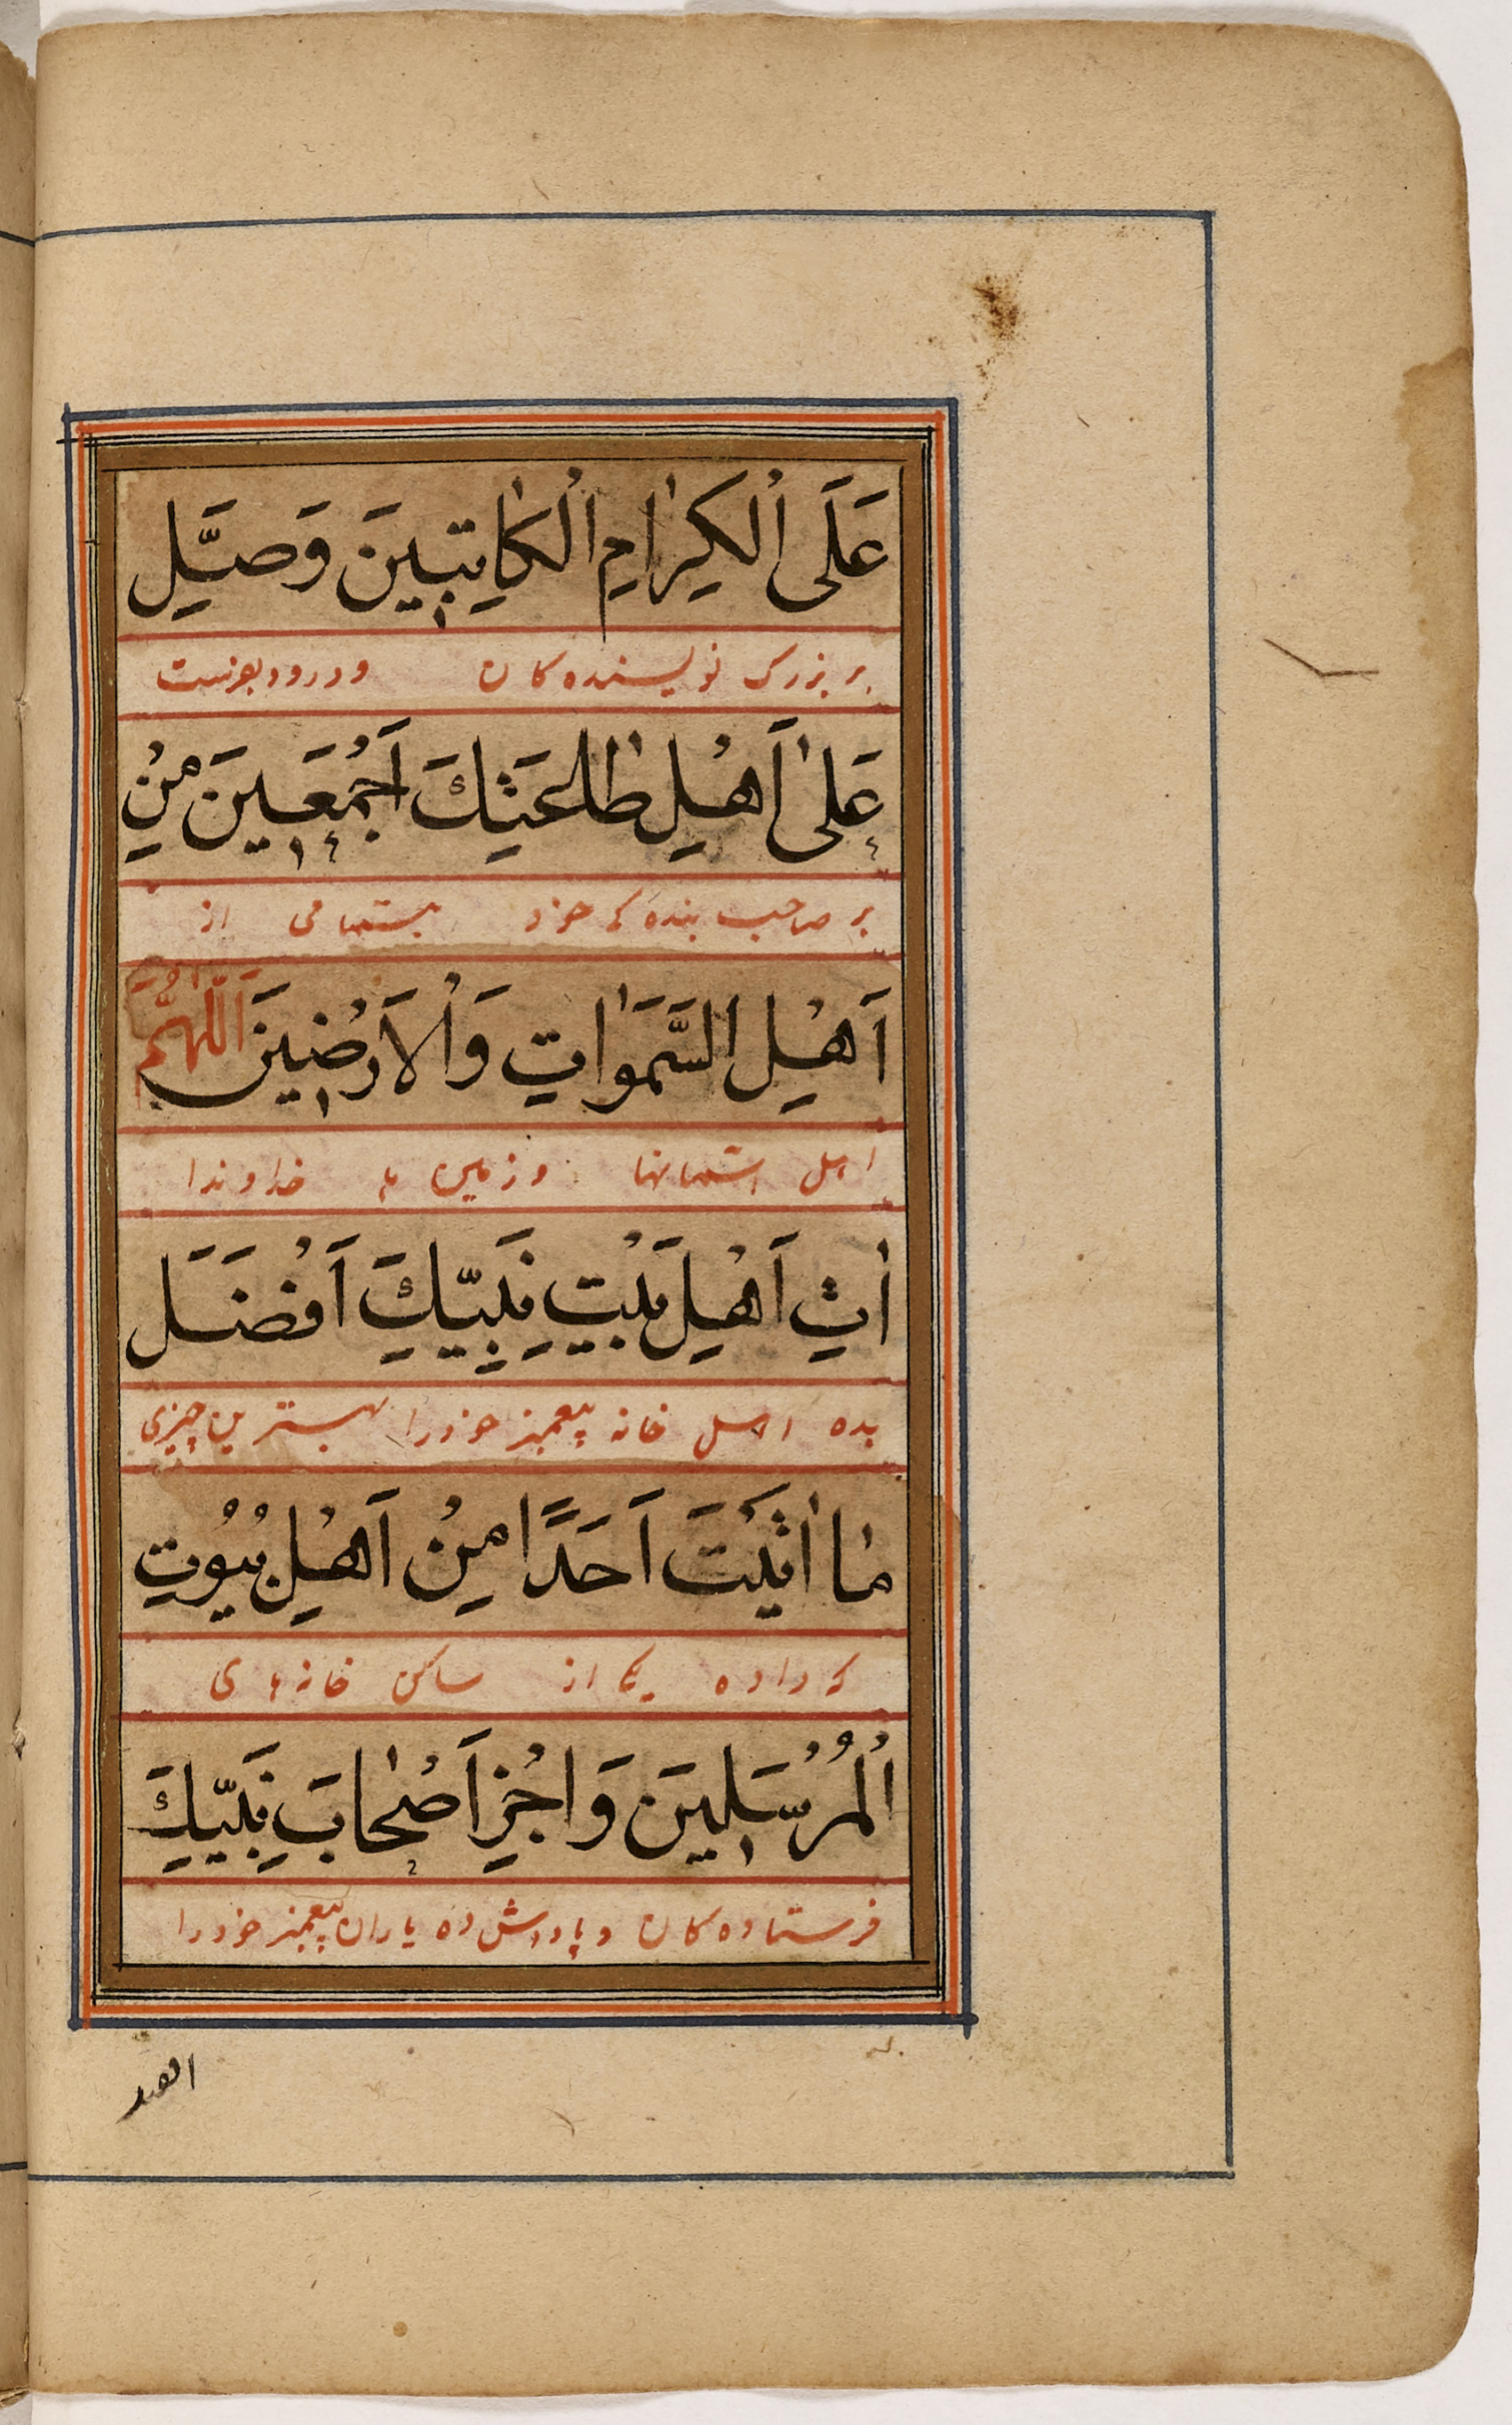 عَلَى ٱلْكِرٰامِ ٱلْكٰاتِبِينَ وَصَلِّ
بر بزرک نویسنده کان و درود بفرست
عَلىٰ اَهْلِ طٰاعَتِكَ اَجْمَعِينَ مِنْ
بر صاحب بنده کی خود بتمامی از
اَهْلِ السَّمَوٰاتِ وَالْاَرَضِينَ اَللّٰهُمَّ
اهل اسمانها و زمین ها خداوندا
اٰتِ اَهْلَ بَيْتِ نَبِيِّكَ اَفْضَلَ
بده اهل خانه پیغمبر خود را بهترین چیزی
مٰا اٰتَيْتَ اَحَدًا مِنْ اَهْلِ بُيُوتِ
که داده یکی از ساکن خانه های
ٱلْمُرْسَلِينَ وَاجْزِ اَصْحٰابَ نَبِيِّكَ
فرستاده کان و پاداش ده یاران پیغمبر خود را